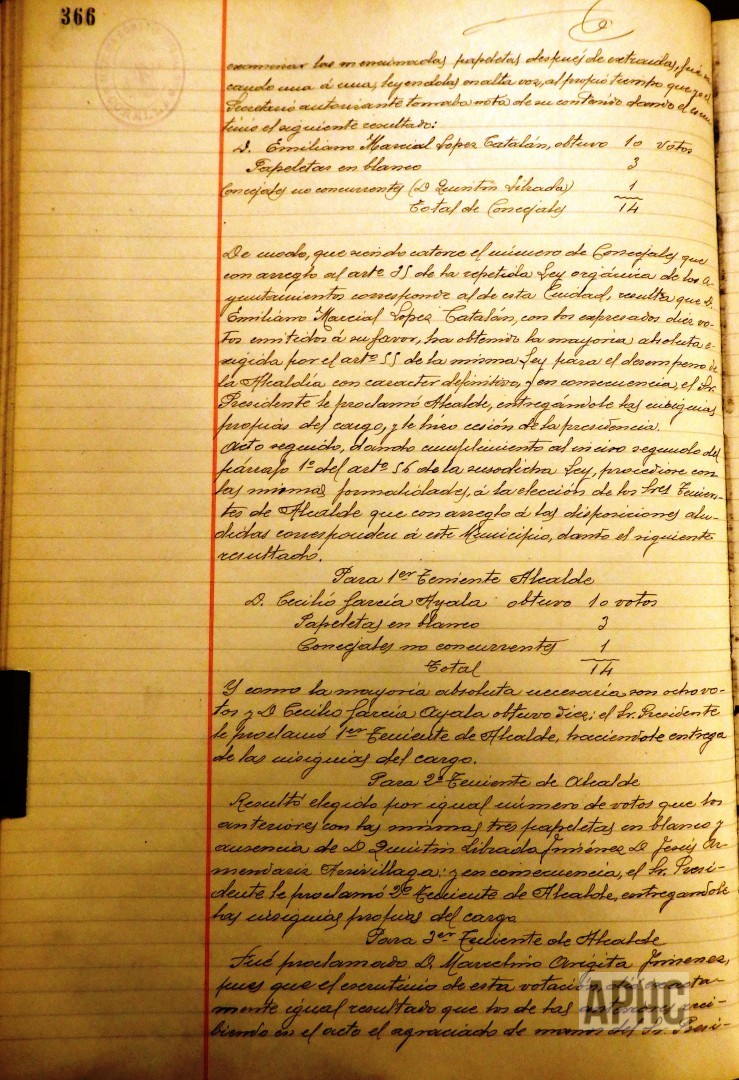 366
examinar las mencionadas papeletas después de extraidas, fué
cando una á una, leyendolas en alta voz, al propio tiempo que yo el
Secretario autorizante tomaba nota de su contenido dando el escru-
tinio el siguiente resultado:
D. Emiliano Marcial Lopez Catalán, obtuvo 10 votos
Papeletas en blanco 3
Concejales no concurrentes (D Quintin Librada) 1
Total de Concejales 14
De modo, que siendo catorce el número de Concejales que
con arreglo al artº 35 de la repetida Ley orgánica de los A-
yuntamientos corresponde al de esta Ciudad, resulta que D.
Emiliano Marcial Lopez Catalán, con los expresados diez vo-
tos emitidos á su favor, ha obtenido la mayoria absoluta e-
xigida por el artº 55 de la misma Ley para el desempeño de
la Alcaldía con caracter definitivo, y en consecuencia, el Sr.
Presidente le proclamó Alcalde, entregándole las insignias
propias del cargo, y le hizo cesión de la presidencia.
Acto seguido, dando cumplimiento al inciso segundo del
párrafo 1º del artº 56 de la susodicha Ley, procediose con
las mismas formalidades, á la elección de los tres Tenien-
tes de Alcalde que con arreglo á las disposiciones alu-
didas corresponden á este Municipio, dando el siguiente
resultado.
Para 1er Teniente Alcalde
D. Cecilio García Ayala obtuvo 10 votos
Papeletas en blanco 3
Concejales no concurrentes 1
Total 14
Y como la mayoría absoluta necesaria son ocho vo-
tos y D Cecilio García Ayala obtuvo diez; el Sr. Presidente
le proclamó 1er Teniente de Alcalde, haciéndole entrega
de las insignias del cargo.
Para 2º Teniente de Alcalde
Resultó elegido por igual número de votos que los
anteriores con las mismas tres papeletas en blanco y
ausencia de D Quintin Librada Jiménez D Jesús Ar-
mendariz; y en consecuencia, el Sr. Presi-
dente le proclamó 2º Teniente de Alcalde, entregandole
las insignias propias del cargo
Para 3er Teniente de Alcalde
Fué proclamado D. Marcelino Arigita Jimenez,
pues que el escrutinio de esta votación
mente igual resultado que los de las anteriores reci-
biendo en el acto el agraciado de manos del Sr. Presi-
APHC